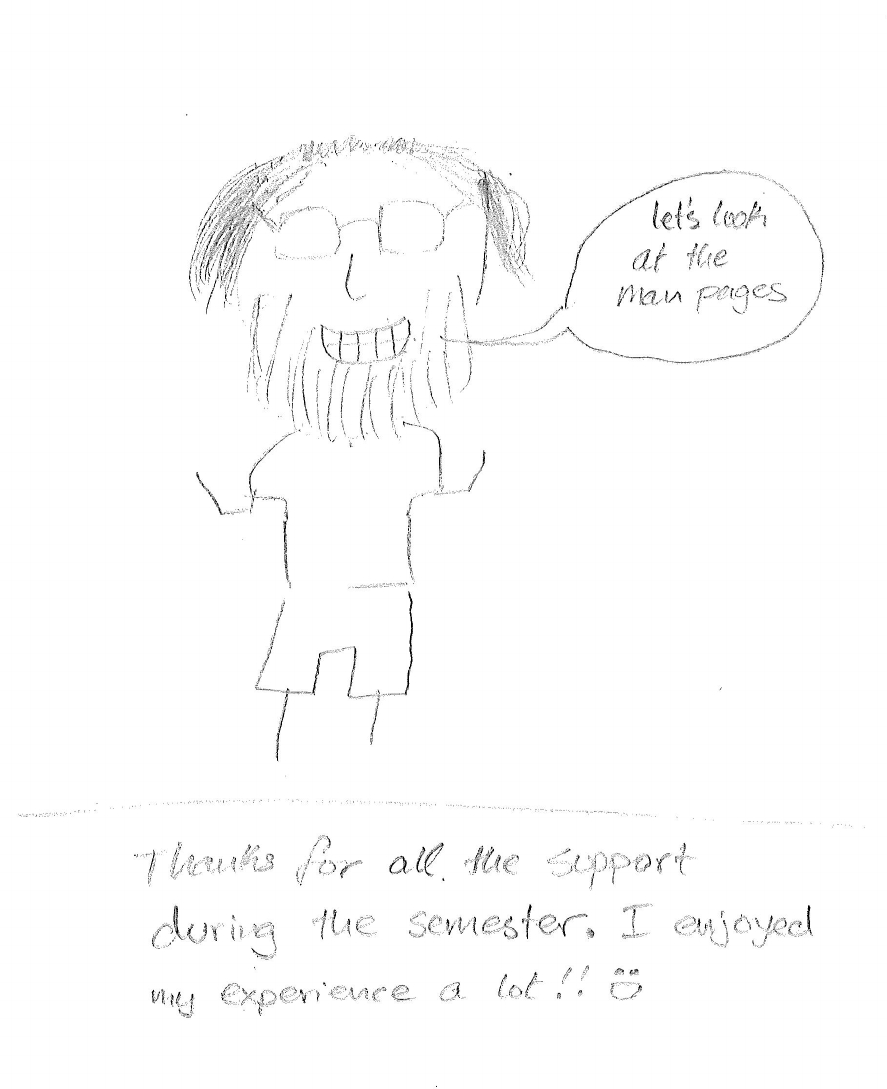 let's look
at the
man pages
Thanks for all the support
during the semester. I enjoyed
my experience a lot!!